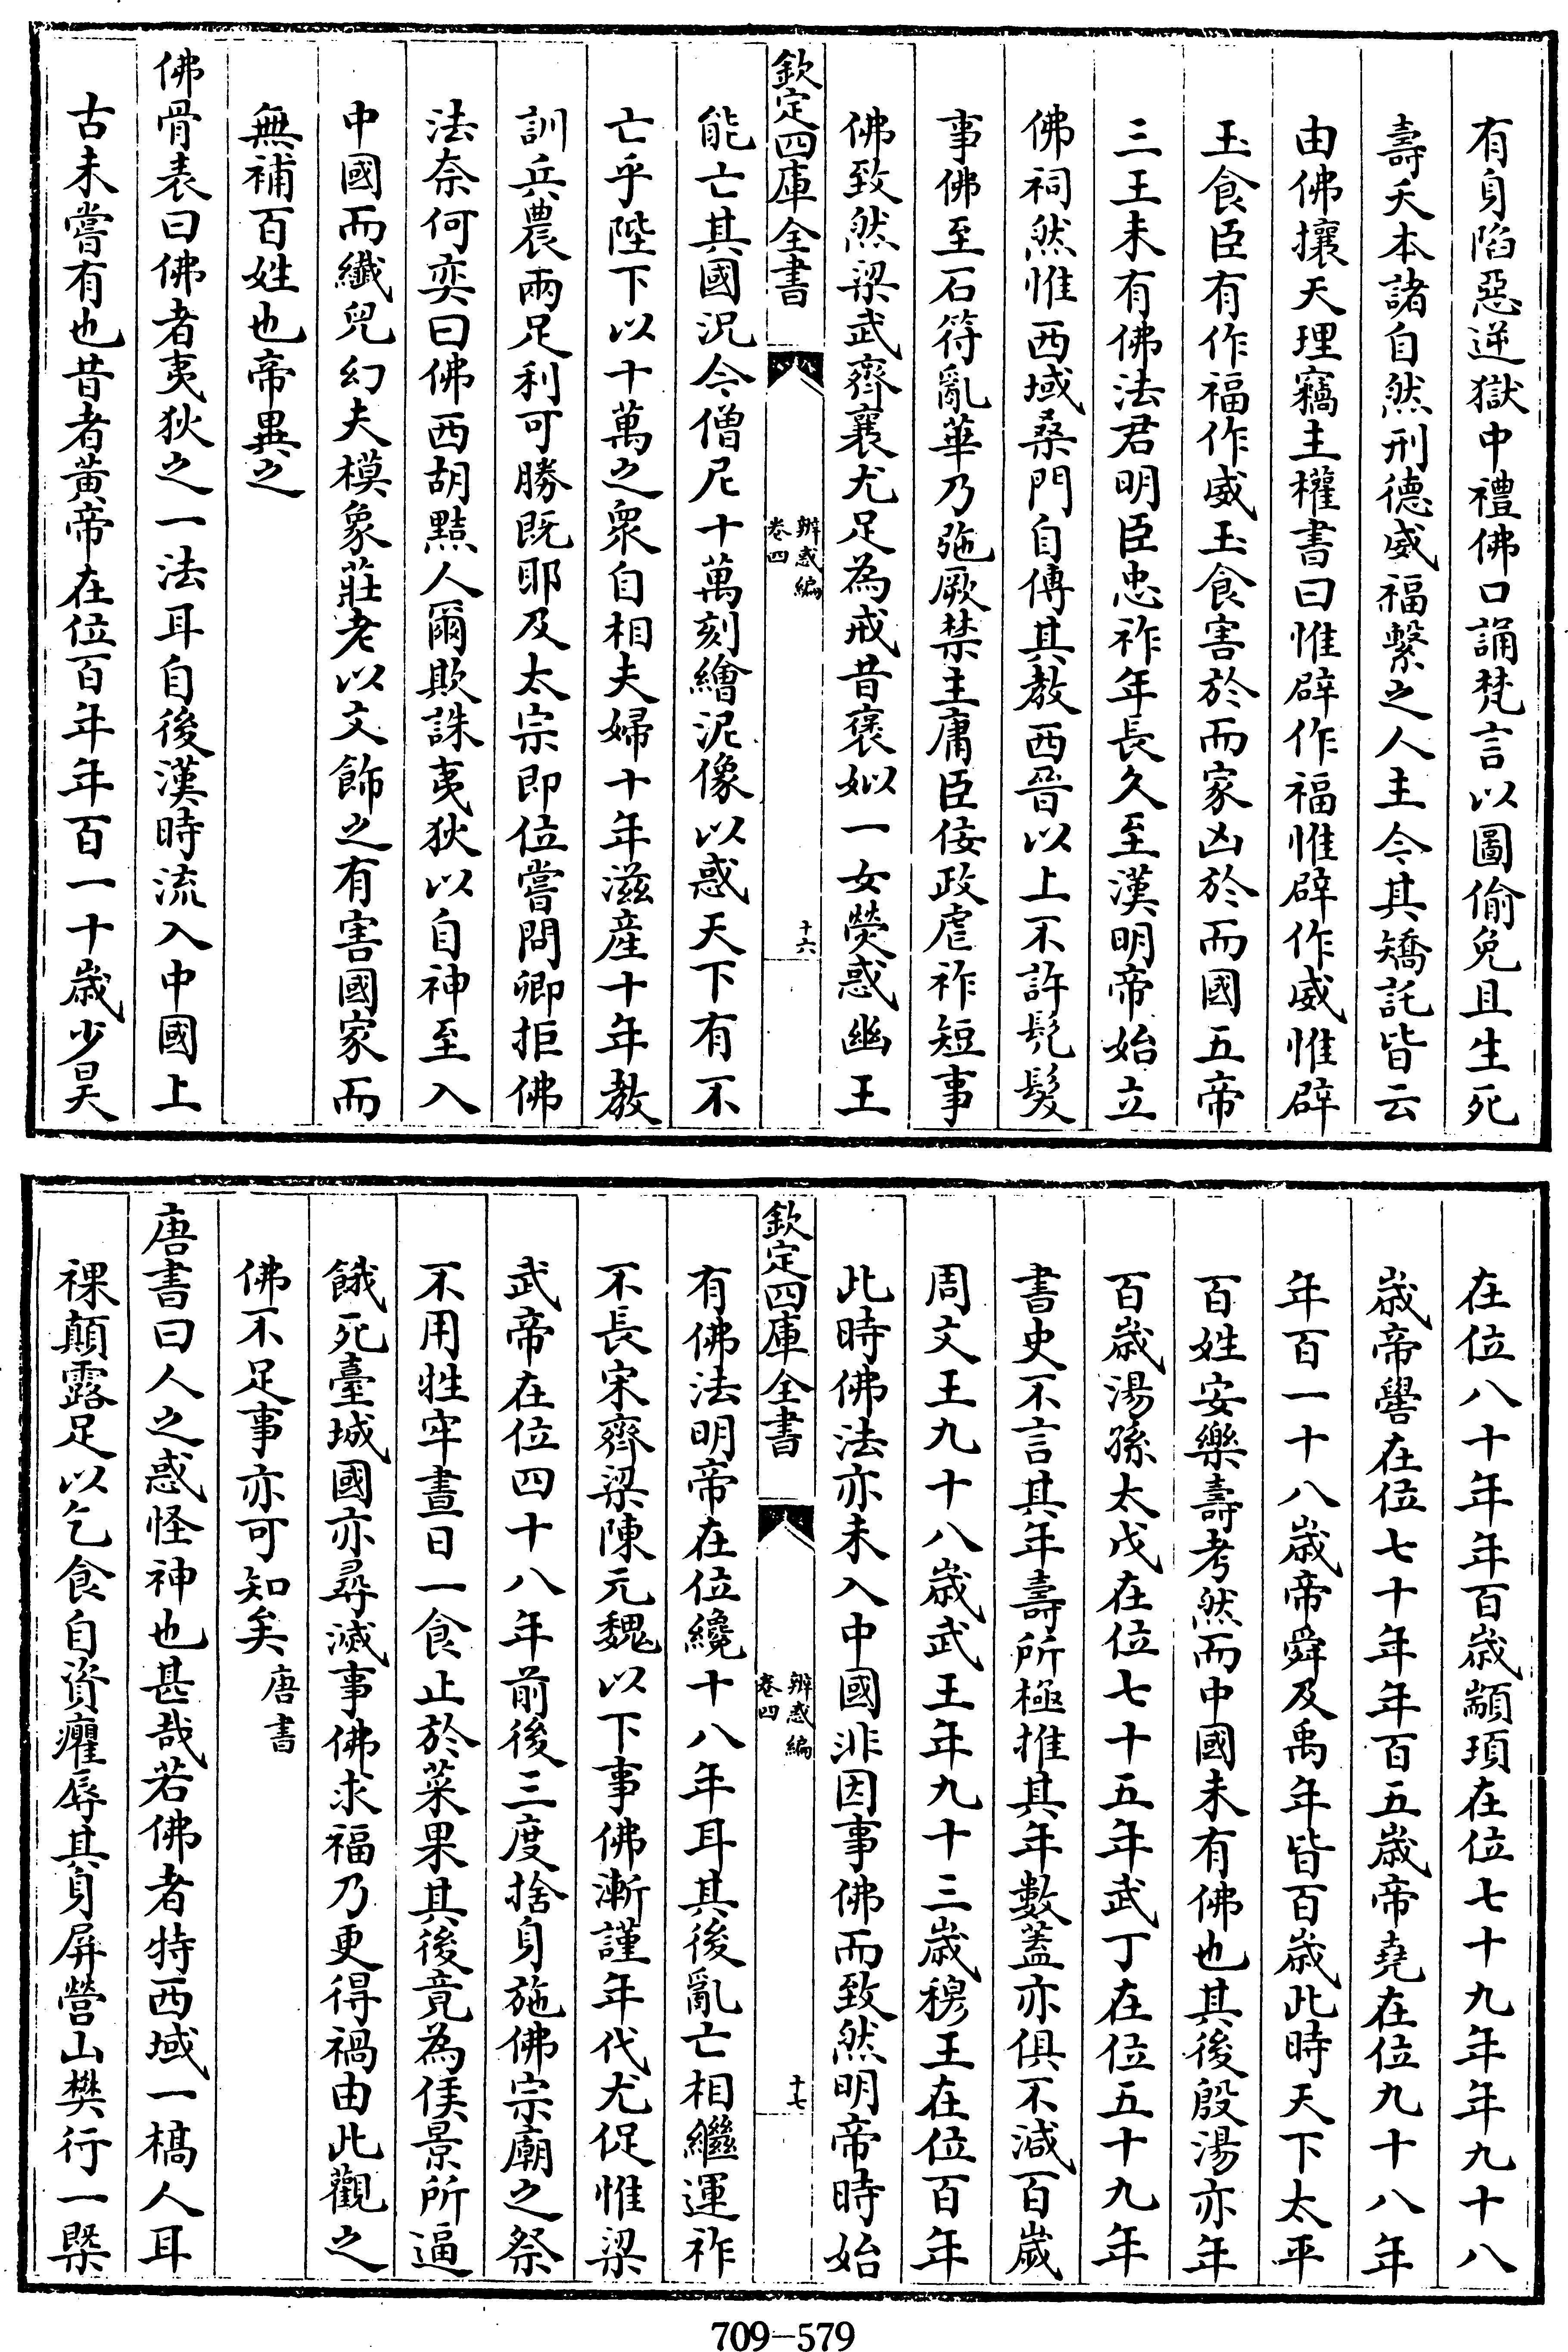 有身陷惡逆獄中禮佛口誦梵言以圖偷免且生死
壽夭本諸自然刑德威福繫之人主今其矯託皆云
由佛攘天理竊主權書曰惟辟作福惟辟作威惟辟
玉食臣有作福作威玉食害於而家凶於而國五帝
三王未有佛法君明臣忠祚年長久至漢明帝始立
佛祠然惟西域桑門自傳其教西晉以上不許髠髮
事佛至石符亂華乃弛厥禁主庸臣佞政虐祚短事
佛致然梁武齊襄尤足為戒昔褒姒一女熒惑幽王
欽定四庫全書
辨惑編
卷四
十六
能亡其國況今僧尼十萬刻繪泥像以惑天下有不
亡乎陛下以十萬之衆自相夫婦十年滋産十年教
訓兵農兩足利可勝既耶及太宗即位嘗問卿拒佛
法奈何奕曰佛西胡黠人爾欺誅夷狄以自神至入
中國而纖兒幻夫模象莊老以文飾之有害國家而
無補百姓也帝異之
佛骨表曰佛者夷狄之一法耳自後漢時流入中國上
古未嘗有也昔者黃帝在位百年年百一十歲少昊
在位八十年年百歲顓頊在位七十九年年九十八
歲帝嚳在位七十年年百五歲帝堯在位九十八年
年百一十八歲帝舜及禹年皆百歲此時天下太平
百姓安樂壽考然而中國未有佛也其後殷湯亦年
百歲湯孫太戊在位七十五年武丁在位五十九年
書史不言其年壽所極推其年數蓋亦俱不減百歲
周文王九十八歲武王年九十三歲穆王在位百年
此時佛法亦未入中國非因事佛而致然明帝時始
欽定四庫全書
辨惑編
卷四
十七
有佛法明帝在位纔十八年耳其後亂亡相繼運祚
不長宋齊梁陳元魏以下事佛漸謹年代尤促惟梁
武帝在位四十八年前後三度捨身施佛宗廟之祭
不用牲牢晝日一食止於菜果其後竟為侯景所逼
餓死臺城國亦尋滅事佛求福乃更得禍由此觀之
佛不足事亦可知矣唐書
唐書曰人之惑怪神也甚哉若佛者特西域一槁人耳
裸顛露足以乞食自資癯辱其身屏營山樊行一槩
709-579